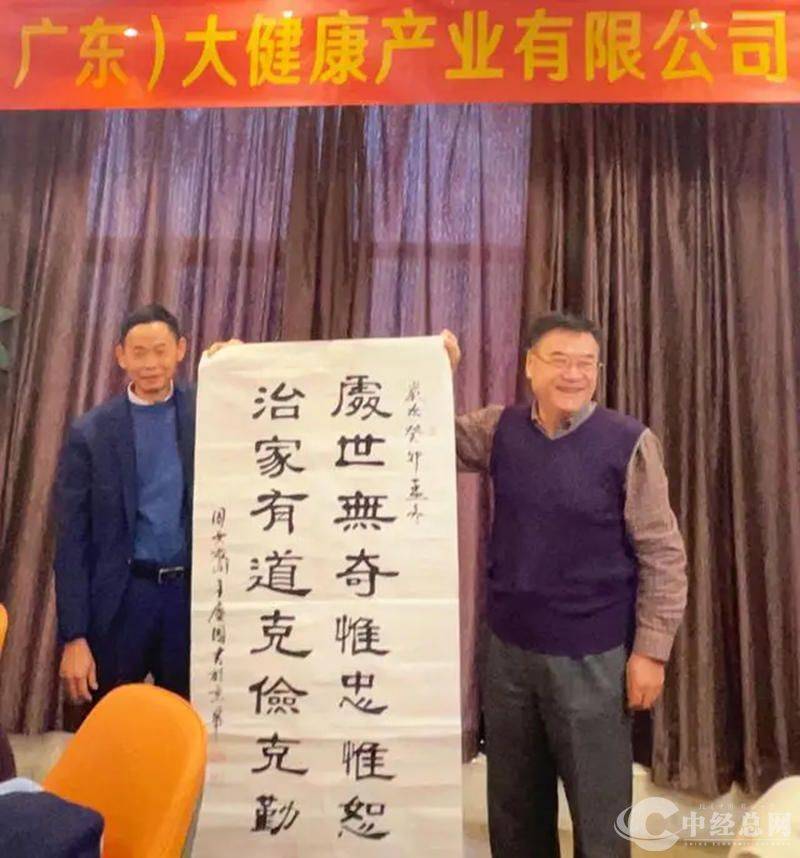 广东）大健康产业有限公司
歲在癸卯孟冬
處世無奇惟忠惟恕
治家有道克儉克勤
中经总网